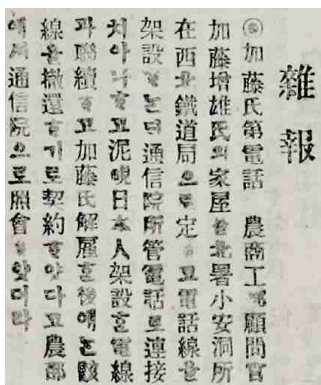 雜報
◎加藤氏第電話 農商工部顧問官
加藤增雄氏의家屋을北署小安洞所
在西北鐵道局으로定ᄒᆞ고電話線을
架設ᄒᆞ는ᄃᆡ通信院所管電話로連接
치아니ᄒᆞ고泥峴日本人架設ᄒᆞᆫ電線
과聯續ᄒᆞ고加藤氏解雇ᄒᆞᆫ後에는該
線을撤還ᄒᆞ기로契約ᄒᆞ얏다고農部
에셔通信院으로照會ᄒᆞ얏더라